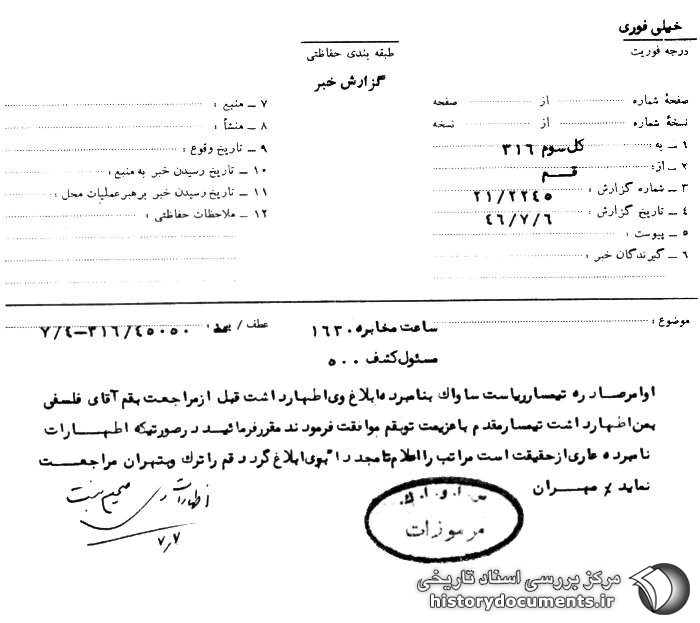 خیلی فوری
درجه فوریت
طبقه بندی حفاظتی
گزارش خبر
صفحهٔ شماره از صفحه
نسخهٔ شماره از نسخه
۱ ــ به: کل سوم ۳۱۶
۲ ــ از: قــم
۳ ــ شماره گزارش: ۲۱/۲۲٤٥
٤ ــ تاریخ گزارش: ٤٦/۷/٦
۵ ــ پیوست:
٦ ــ گیرندگان خبر:
۷ ــ منبع:
۸ ــ منشأ:
۹ ــ تاریخ وقوع:
۱۰ ــ تاریخ رسیدن خبر به منبع:
۱۱ ــ تاریخ رسیدن خبر برهبر عملیات محل:
۱۲ ــ ملاحظات حفاظتی:
موضوع: ساعت مخابره ۱٦۳۰ عطف / ۳۱٦/٤٥۰٥۰–۷/٤
مسئول کشف ٥۰۰
اوامر صادره تیمسار ریاست ساواك بنامبرده ابلاغ وی اظهار داشت قبل از مراجعت بقم آقای فلسفی
بمن اظهار داشت تیمسار مقدم با عزیمت تو بقم موافقت فرمودند مقرر فرمائید در صورتیکه اظهـارات
نامبرده عاری از حقیقت است مراتب را اعلام تا مجدداً بوی ابلاغ گردد قم را ترك و بتهران مراجعـت
نماید مهـران
س.ا.و.ا.ك.
مرموزات
اظهارات وی صحیح نیست
۷/۷
مرکز بررسی اسناد تاریخی
historydocuments.ir